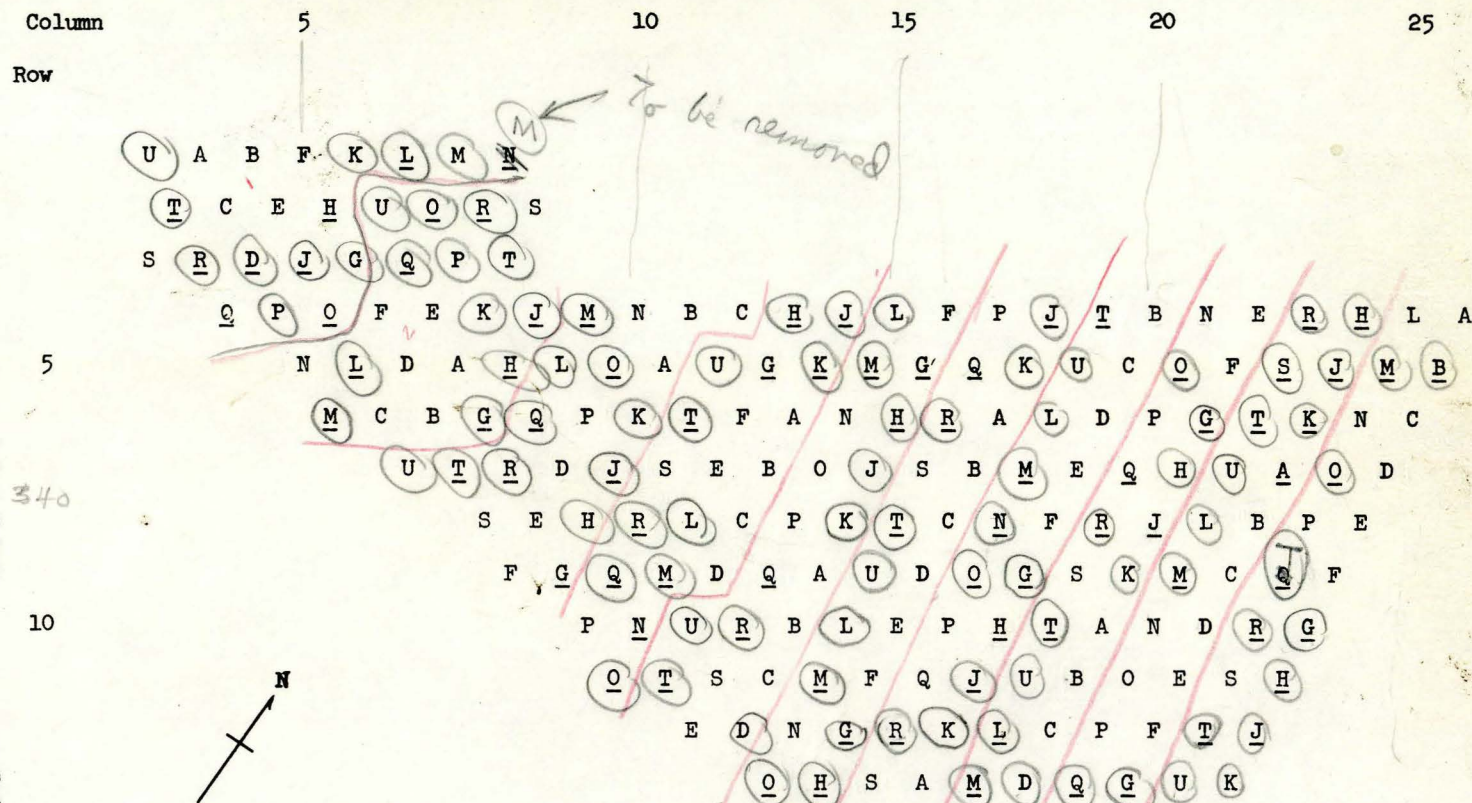 Column 5 10 15 20 25
Row
M To be removed
U A B F K L M N
T C E H U O R S
S R D J G Q P T
Q P O F E K J M N B C H J L F P J T B N E R H L A
5 N L D A H L O A U G K M G Q K U C O F S J M B
M C B G Q P K T F A N H R A L D P G T K N C
U T R D J S E B O J S B M E Q H U A O D
340
S E H R L C P K T C N F R J L B P E
F G Q M D Q A U D O G S K M C Q F
10 P N U R B L E P H T A N D R G
N O T S C M F Q J U B O E S H
E D N G R K L C P F T J
O H S A M D Q G U K